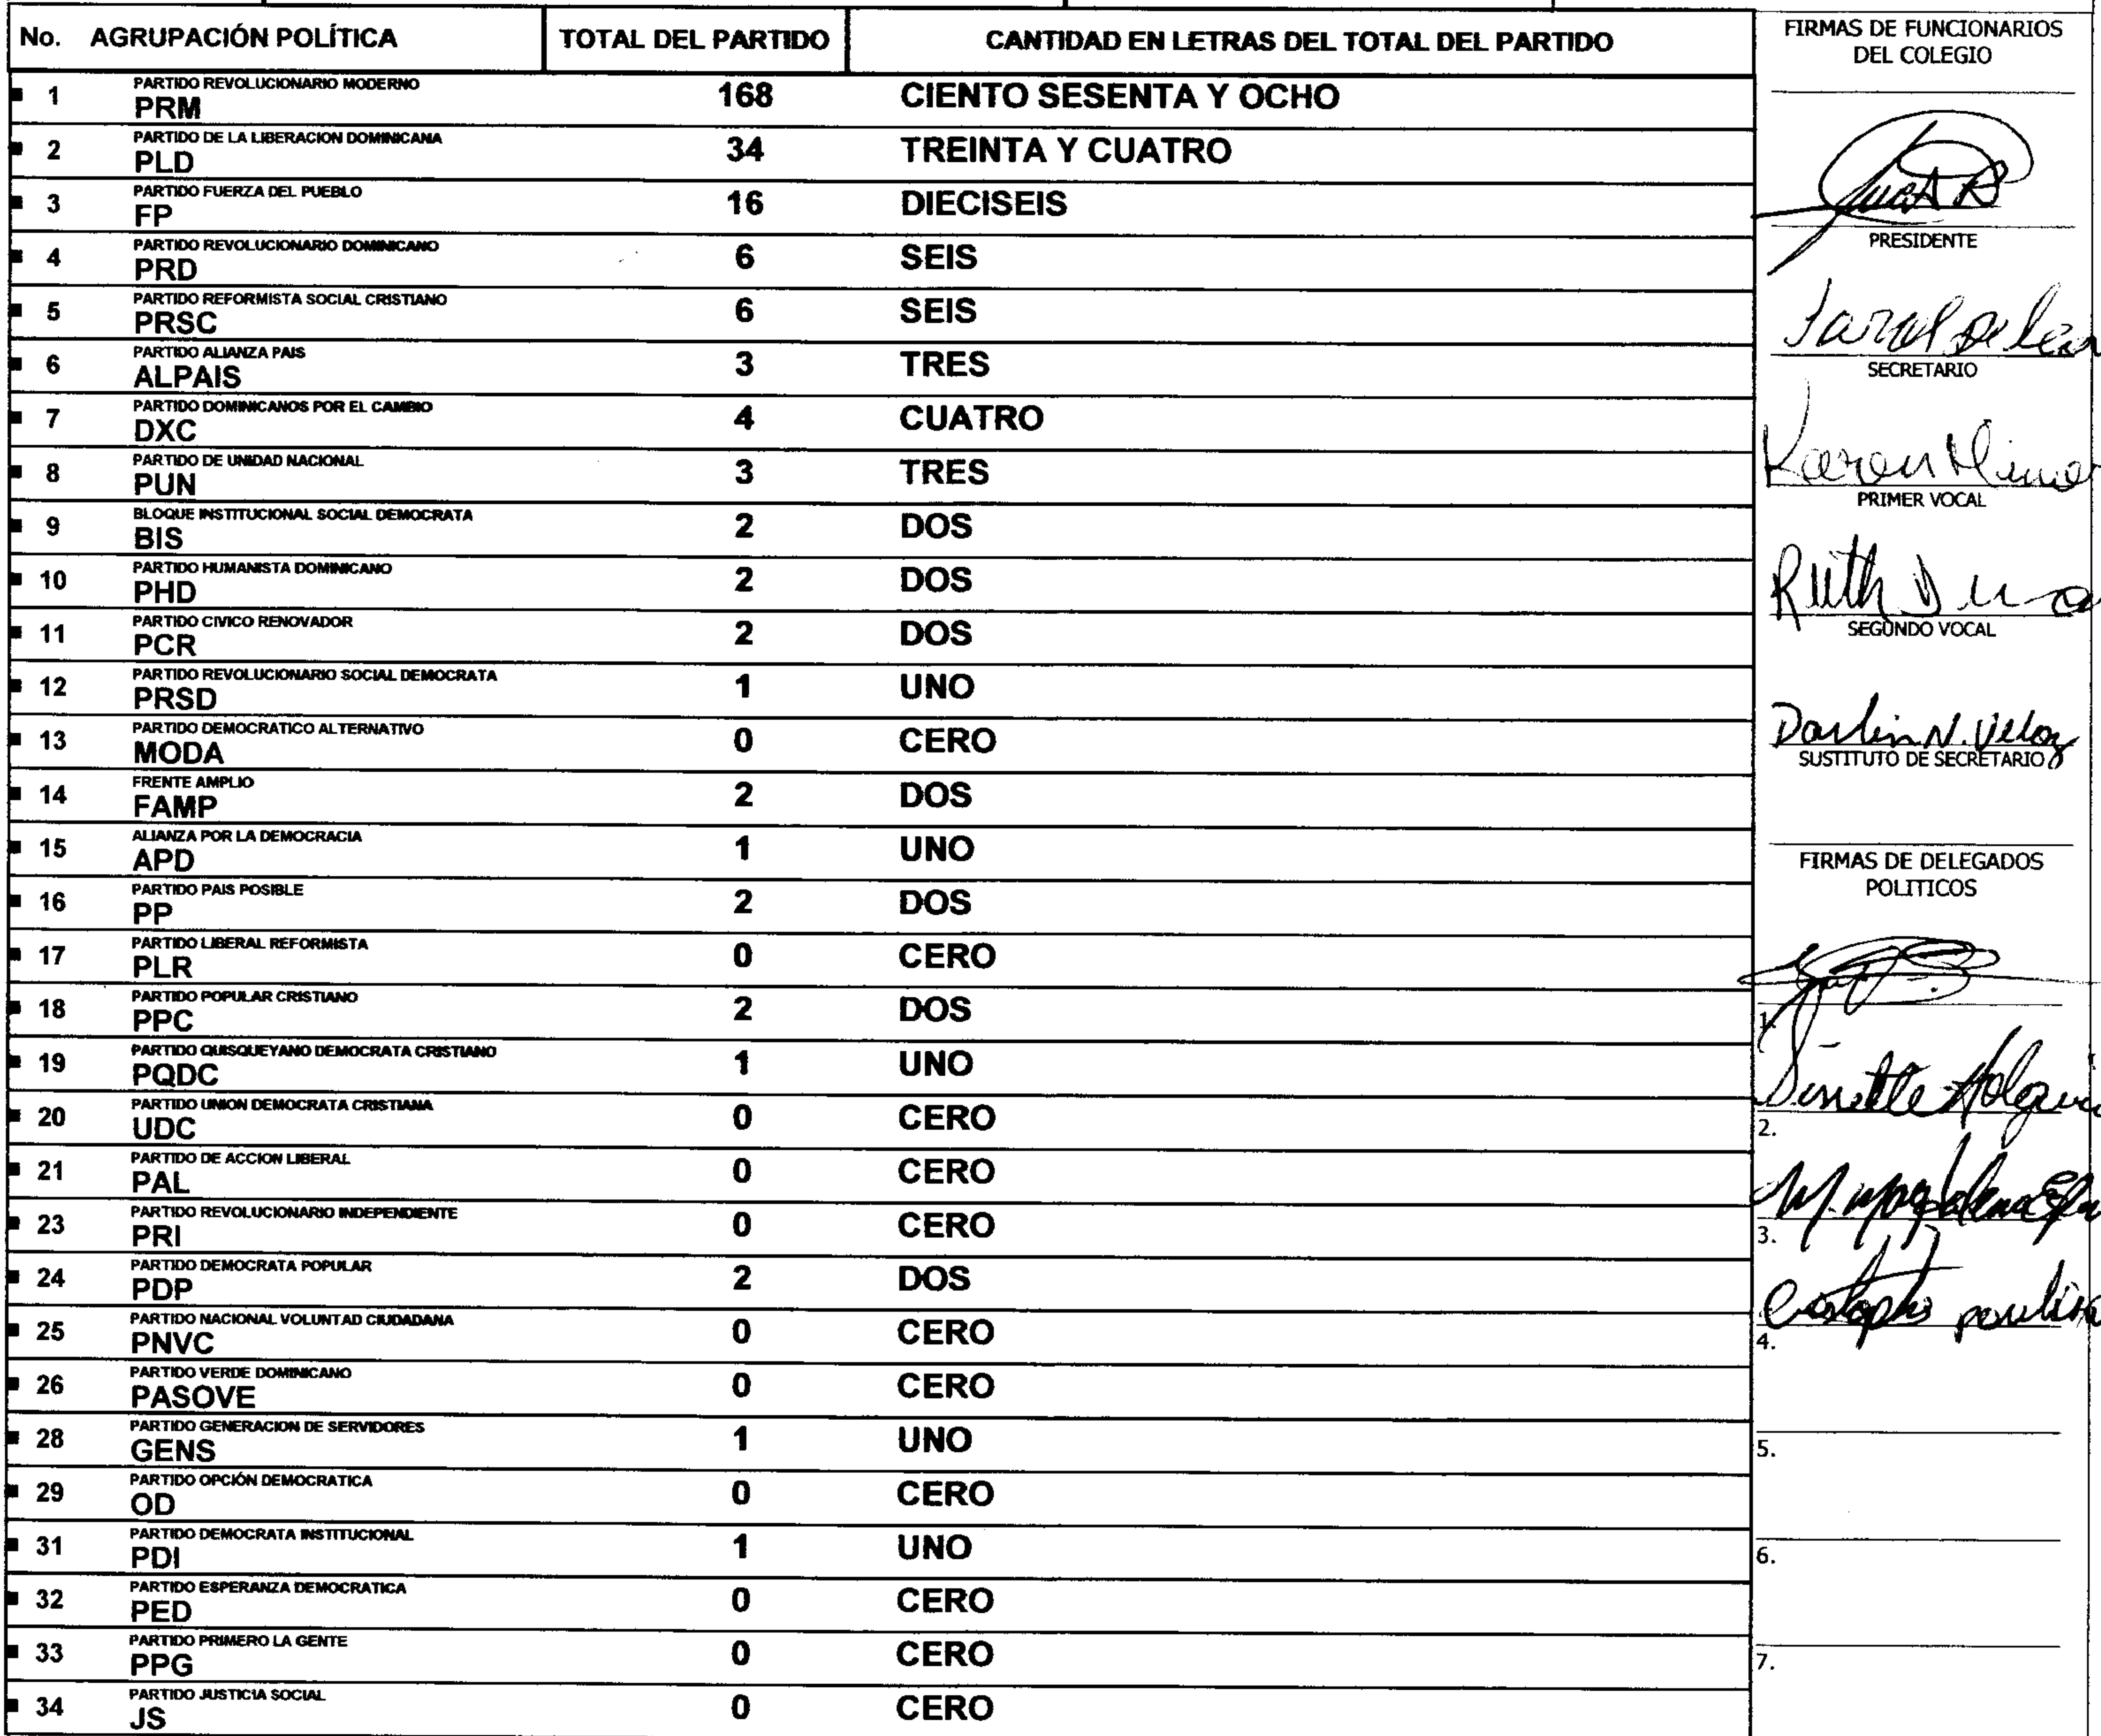 No. AGRUPACIÓN POLÍTICA TOTAL DEL PARTIDO CANTIDAD EN LETRAS DEL TOTAL DEL PARTIDO
1 PARTIDO REVOLUCIONARIO MODERNO
PRM 168 CIENTO SESENTA Y OCHO
2 PARTIDO DE LA LIBERACION DOMINICANA
PLD 34 TREINTA Y CUATRO
3 PARTIDO FUERZA DEL PUEBLO
FP 16 DIECISEIS
4 PARTIDO REVOLUCIONARIO DOMINICANO
PRD 6 SEIS
5 PARTIDO REFORMISTA SOCIAL CRISTIANO
PRSC 6 SEIS
6 PARTIDO ALIANZA PAIS
ALPAIS 3 TRES
7 PARTIDO DOMINICANOS POR EL CAMBIO
DXC 4 CUATRO
8 PARTIDO DE UNIDAD NACIONAL
PUN 3 TRES
9 BLOQUE INSTITUCIONAL SOCIAL DEMOCRATA
BIS 2 DOS
10 PARTIDO HUMANISTA DOMINICANO
PHD 2 DOS
11 PARTIDO CIVICO RENOVADOR
PCR 2 DOS
12 PARTIDO REVOLUCIONARIO SOCIAL DEMOCRATA
PRSD 1 UNO
13 PARTIDO DEMOCRATICO ALTERNATIVO
MODA 0 CERO
14 FRENTE AMPLIO
FAMP 2 DOS
15 ALIANZA POR LA DEMOCRACIA
APD 1 UNO
16 PARTIDO PAIS POSIBLE
PP 2 DOS
17 PARTIDO LIBERAL REFORMISTA
PLR 0 CERO
18 PARTIDO POPULAR CRISTIANO
PPC 2 DOS
19 PARTIDO QUISQUEYANO DEMOCRATA CRISTIANO
PQDC 1 UNO
20 PARTIDO UNION DEMOCRATA CRISTIANA
UDC 0 CERO
21 PARTIDO DE ACCION LIBERAL
PAL 0 CERO
23 PARTIDO REVOLUCIONARIO INDEPENDIENTE
PRI 0 CERO
24 PARTIDO DEMOCRATA POPULAR
PDP 2 DOS
25 PARTIDO NACIONAL VOLUNTAD CIUDADANA
PNVC 0 CERO
26 PARTIDO VERDE DOMINICANO
PASOVE 0 CERO
28 PARTIDO GENERACION DE SERVIDORES
GENS 1 UNO
29 PARTIDO OPCIÓN DEMOCRATICA
OD 0 CERO
31 PARTIDO DEMOCRATA INSTITUCIONAL
PDI 1 UNO
32 PARTIDO ESPERANZA DEMOCRATICA
PED 0 CERO
33 PARTIDO PRIMERO LA GENTE
PPG 0 CERO
34 PARTIDO JUSTICIA SOCIAL
JS 0 CERO
FIRMAS DE FUNCIONARIOS
DEL COLEGIO
PRESIDENTE
SECRETARIO
Karen
PRIMER VOCAL
Ruth
SEGUNDO VOCAL
Darlin N. Veloz
SUSTITUTO DE SECRETARIO
FIRMAS DE DELEGADOS
POLITICOS
1.
2.
3.
4.
5.
6.
7.